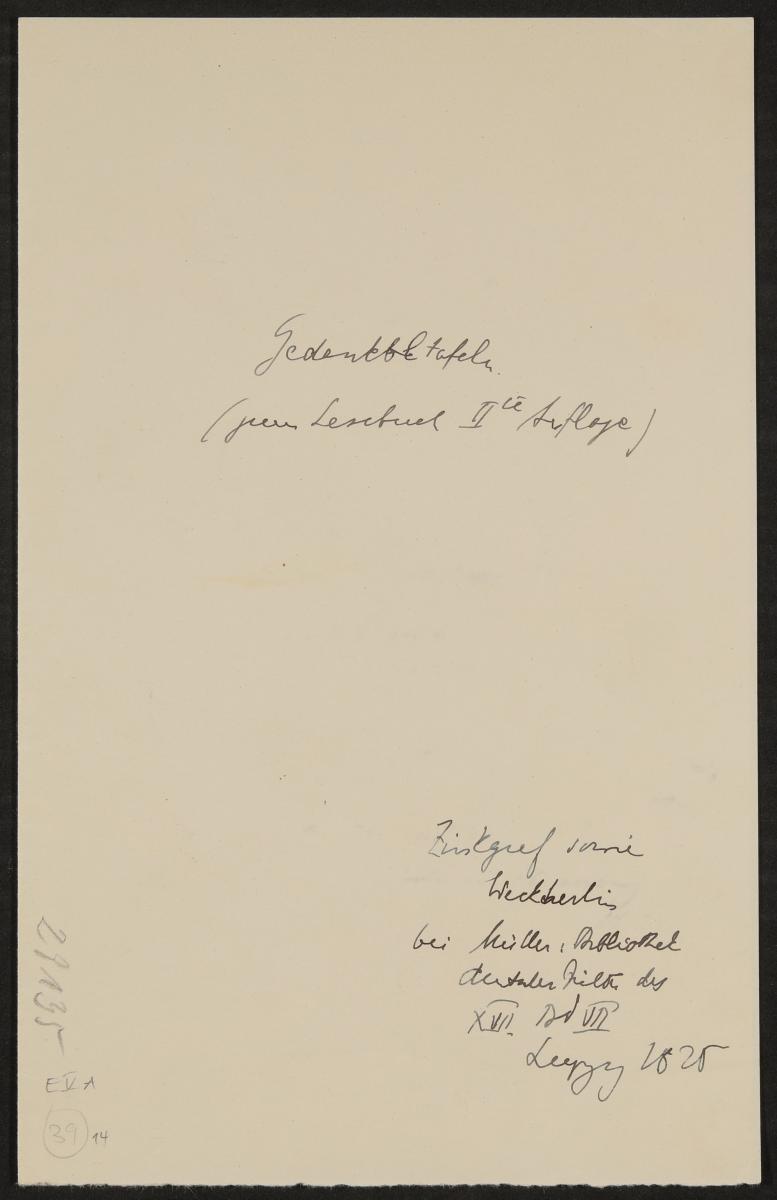 Gedenktafeln.
(zum Lesebuch II te Auflage)
Zinkgref sowie
Weckherlin
bei Müller, Bibliothek
deutscher Dichter des
XVII. Bd VII
Leipzig 1825
29135
E V A
39 14